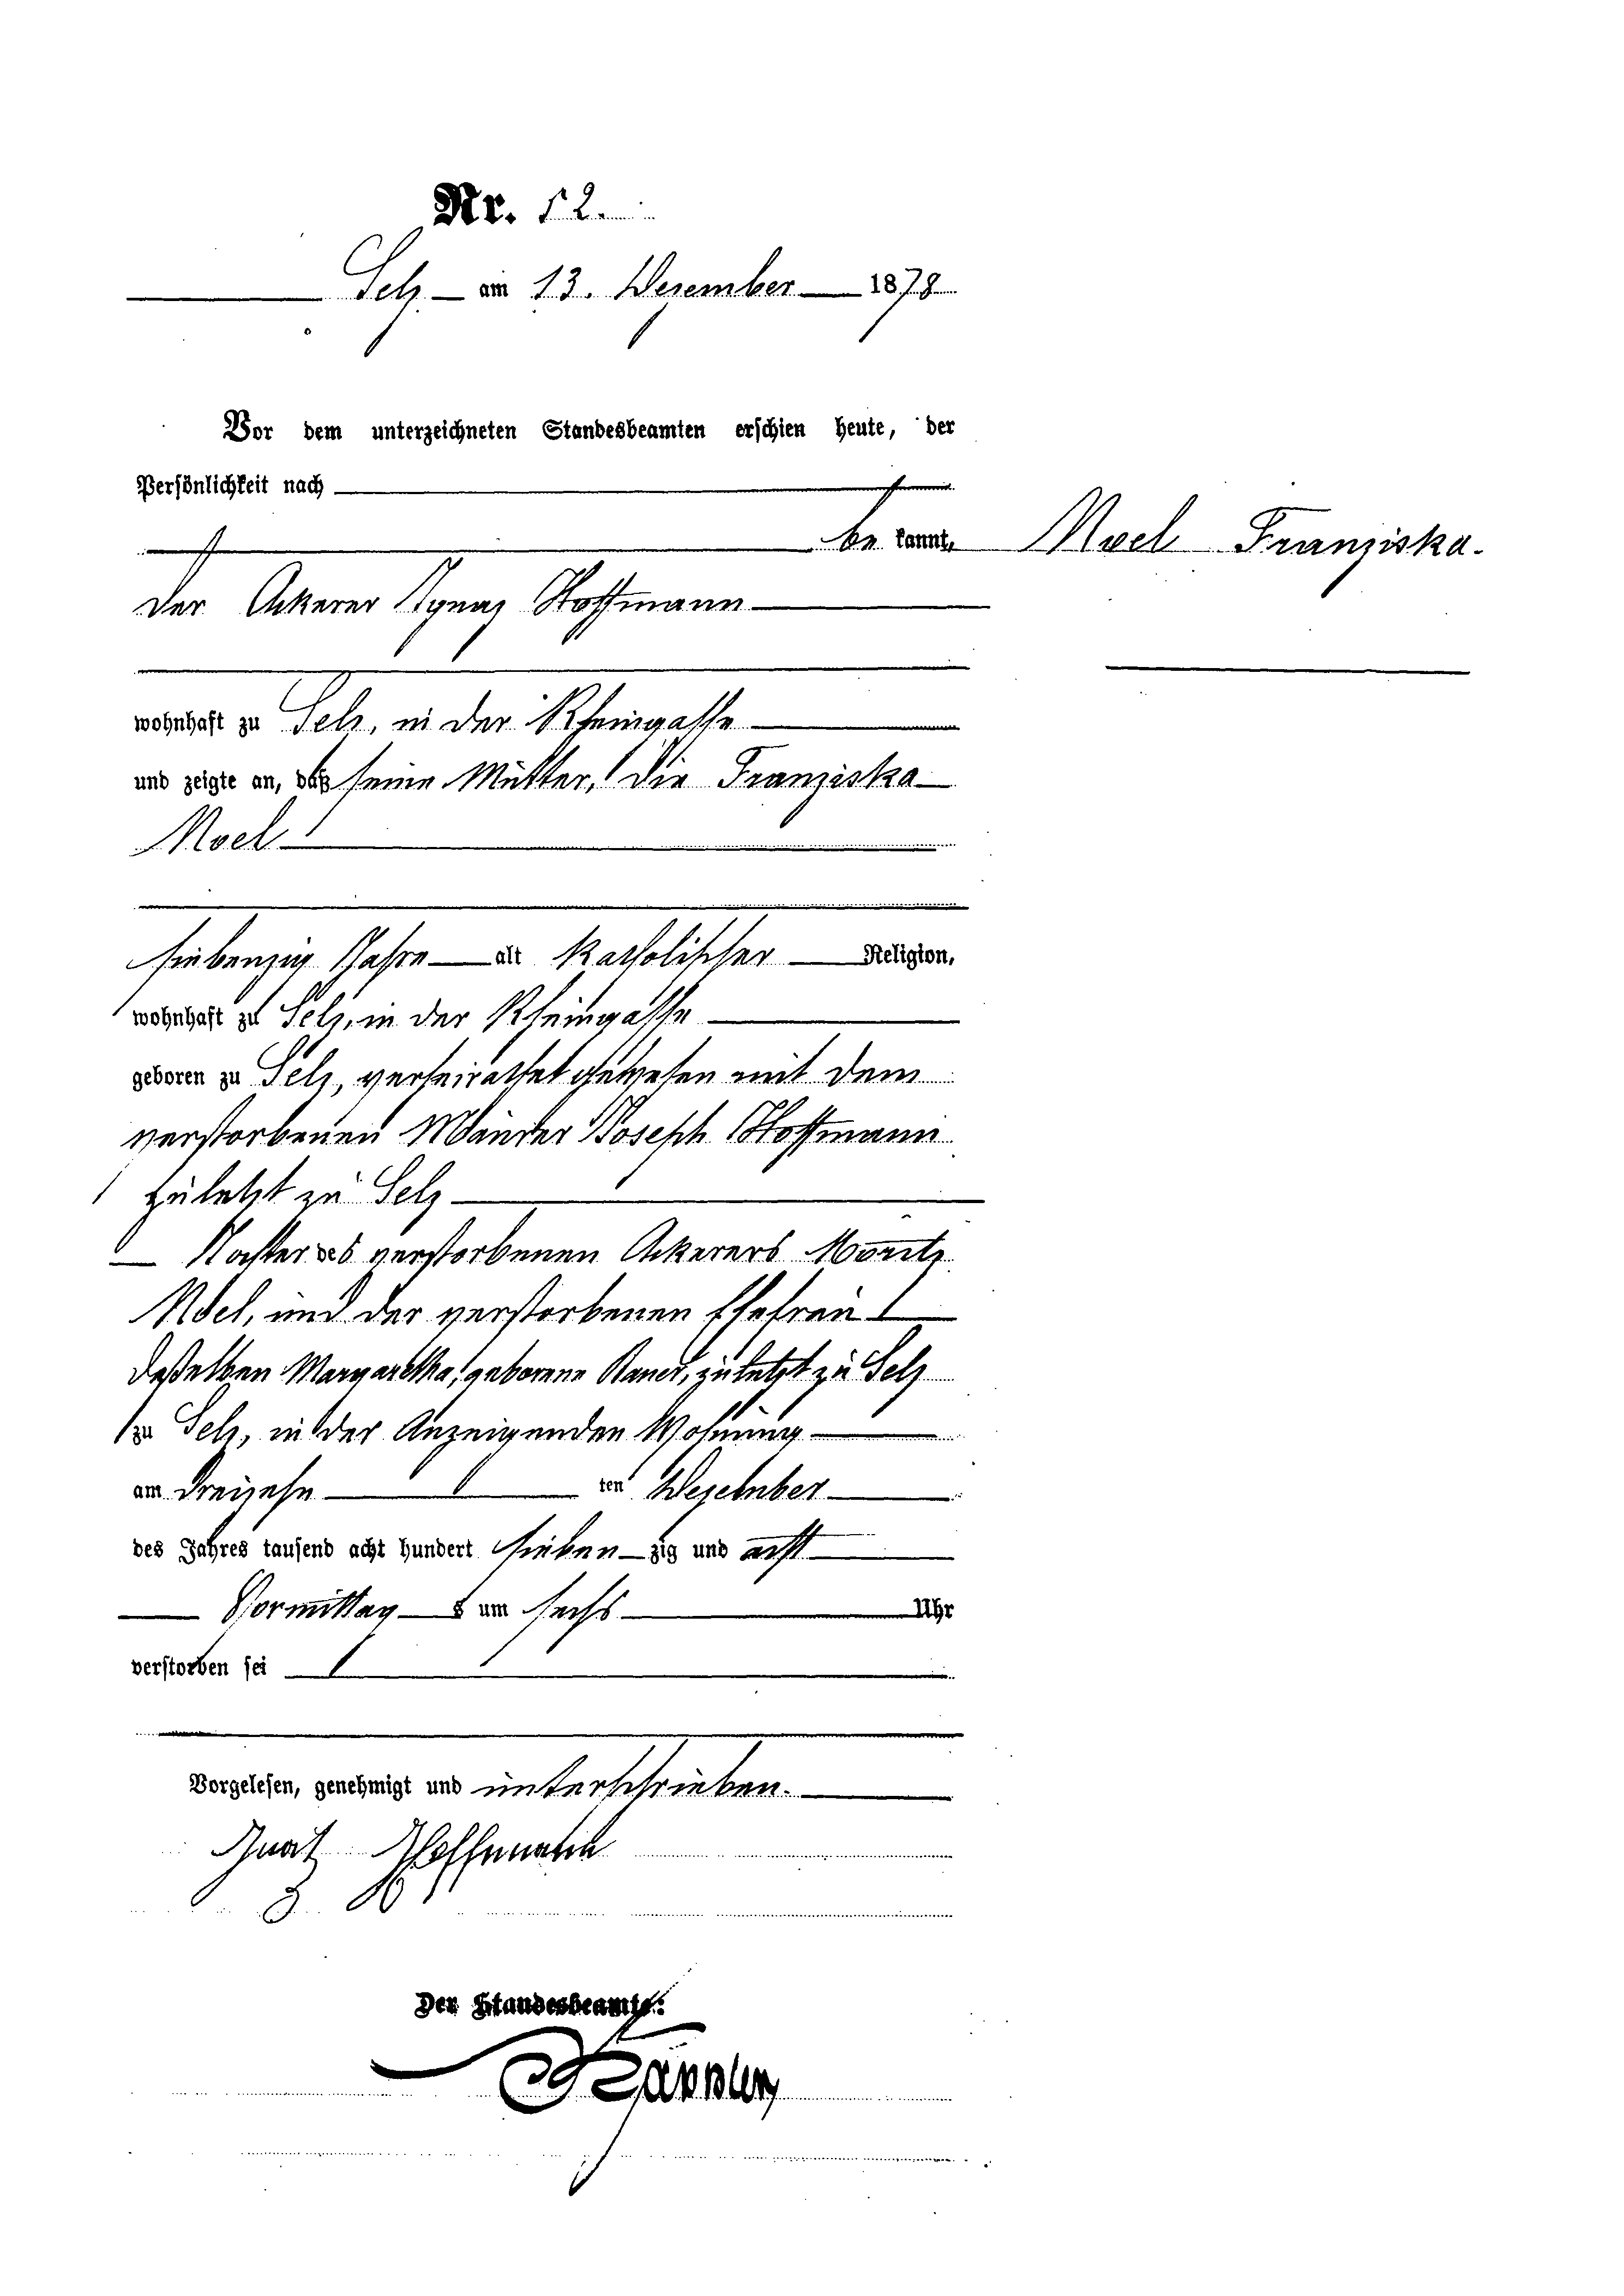 Nr. 52.
Selz am 13. Dezember 1878
Vor dem unterzeichneten Standesbeamten erschien heute, der
Persönlichkeit nach
be kannt,
Noel Franziska.
der Ackerer Ignaz Hoffmann
wohnhaft zu Selz, in der Rheingasse
und zeigte an, daß seine Mutter, die Franziska
Noel
siebenzig Jahre alt katholischer Religion,
wohnhaft zu Selz, in der Rheingasse
geboren zu Selz, verheirathet gewesen mit dem
verstorbenen Joseph Hoffmann
zuletzt zu Selz
Tochter des verstorbenen Ackerers Moritz
Noel, und der verstorbenen Ehefrau
deßelben Margaretha, geborene zuletzt zu Selz
zu Selz, in der Anzeigenden Wohnung
am dreizehn ten Dezember
des Jahres tausend acht hundert sieben zig und acht
Vormittag s um sechs Uhr
verstorben sei
Vorgelesen, genehmigt und unterschrieben.
Ignatz Hoffmann
Der Standesbeamte: